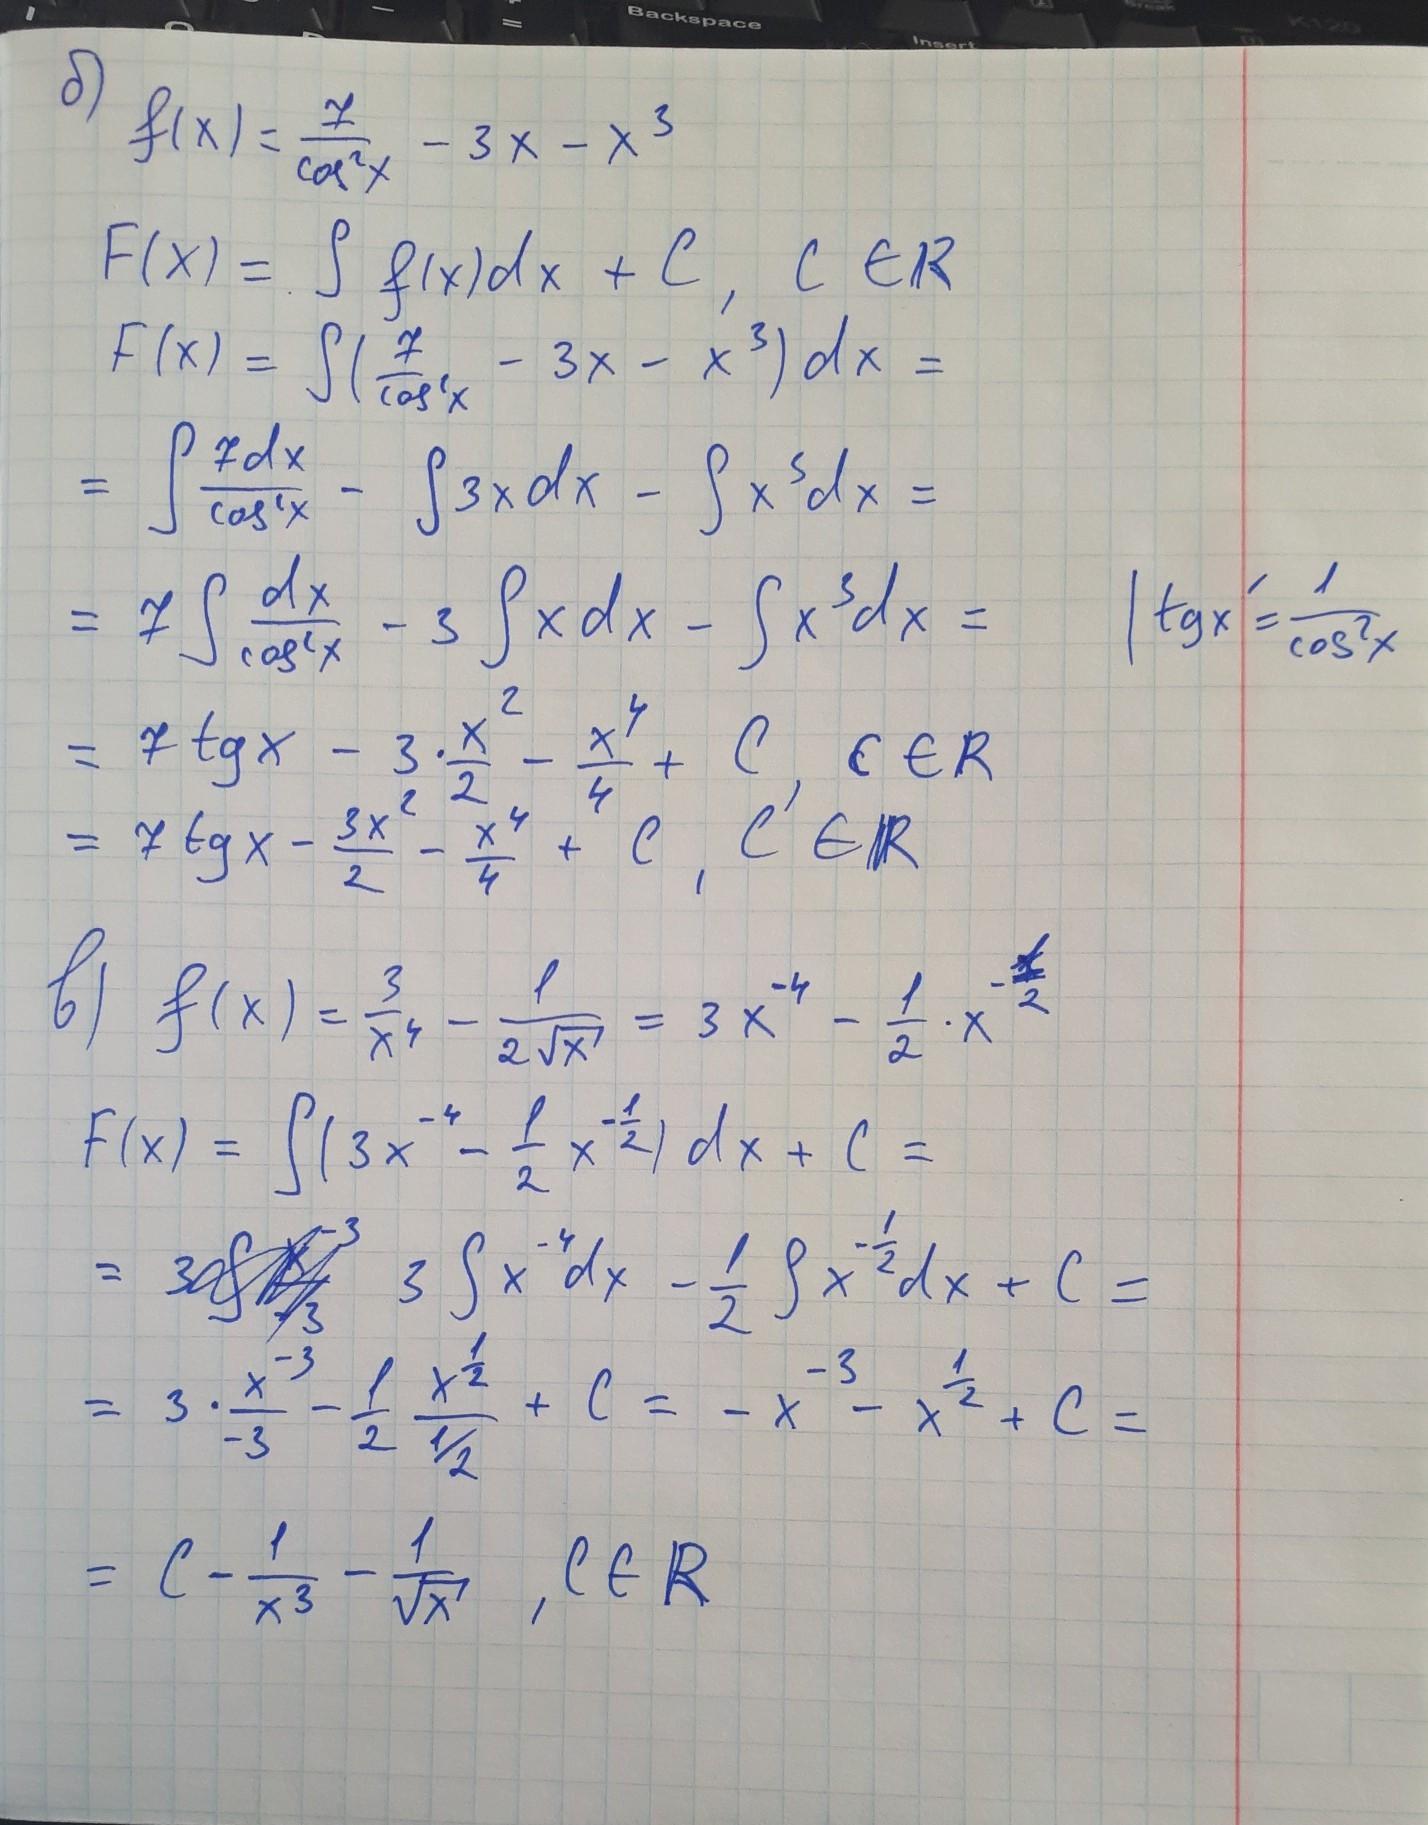 Backspace
Insert
K120
б) f(x) = 7/cos²x - 3x - x³
F(x) = ∫ f(x)dx + C, C ∈ R
F(x) = ∫(7/cos²x - 3x - x³) dx =
= ∫ 7dx/cos²x - ∫3x dx - ∫ x³dx =
= 7∫ dx/cos²x - 3 ∫ x dx - ∫ x³dx = | tgx' = 1/cos²x
= 7 tgx - 3·x²/2 - x⁴/4 + C, C ∈ R
= 7 tgx - 3x²/2 - x⁴/4 + C, C ∈ R
в) f(x) = 3/x⁴ - 1/(2√x) = 3x⁻⁴ - 1/2 · x^(-1/2)
F(x) = ∫(3x⁻⁴ - 1/2 x^(-1/2)) dx + C =
= 3 ∫ x⁻⁴dx - 1/2 ∫ x^(-1/2)dx + C =
= 3 · x⁻³/-3 - 1/2 x^(1/2)/(1/2) + C = - x⁻³ - x^(1/2) + C =
= C - 1/x³ - 1/√x, C ∈ R